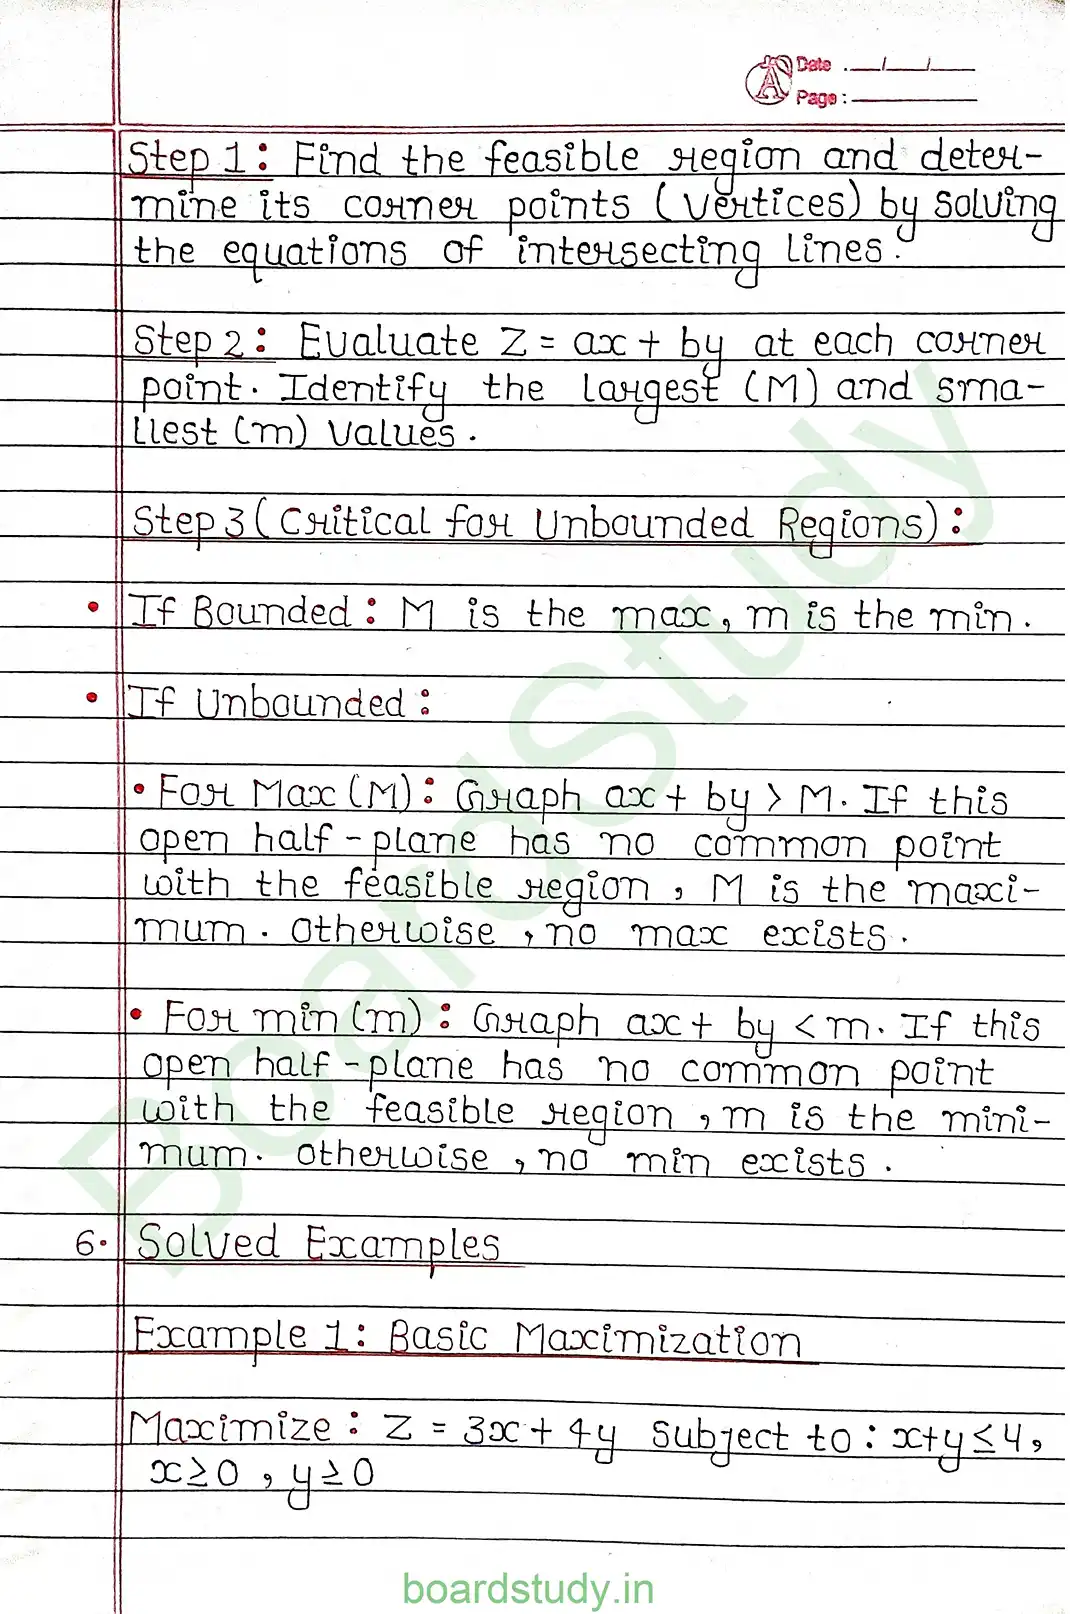 Date : __/__/__
Page : ______
Step 1 : Find the feasible region and deter-
mine its corner points (vertices) by solving
the equations of intersecting lines.
Step 2 : Evaluate Z = ax + by at each corner
point. Identify the largest (M) and sma-
llest (m) values.
Step 3 (Critical for Unbounded Regions) :
• If Bounded : M is the max, m is the min.
• If Unbounded :
• For Max (M) : Graph ax + by > M. If this
open half-plane has no common point
with the feasible region, M is the maxi-
mum. otherwise, no max exists.
• For min (m) : Graph ax + by < m. If this
open half-plane has no common point
with the feasible region, m is the mini-
mum. otherwise, no min exists.
6. Solved Examples
Example 1 : Basic Maximization
Maximize : Z = 3x + 4y Subject to : x+y ≤ 4,
x ≥ 0, y ≥ 0
BoardStudy
boardstudy.in